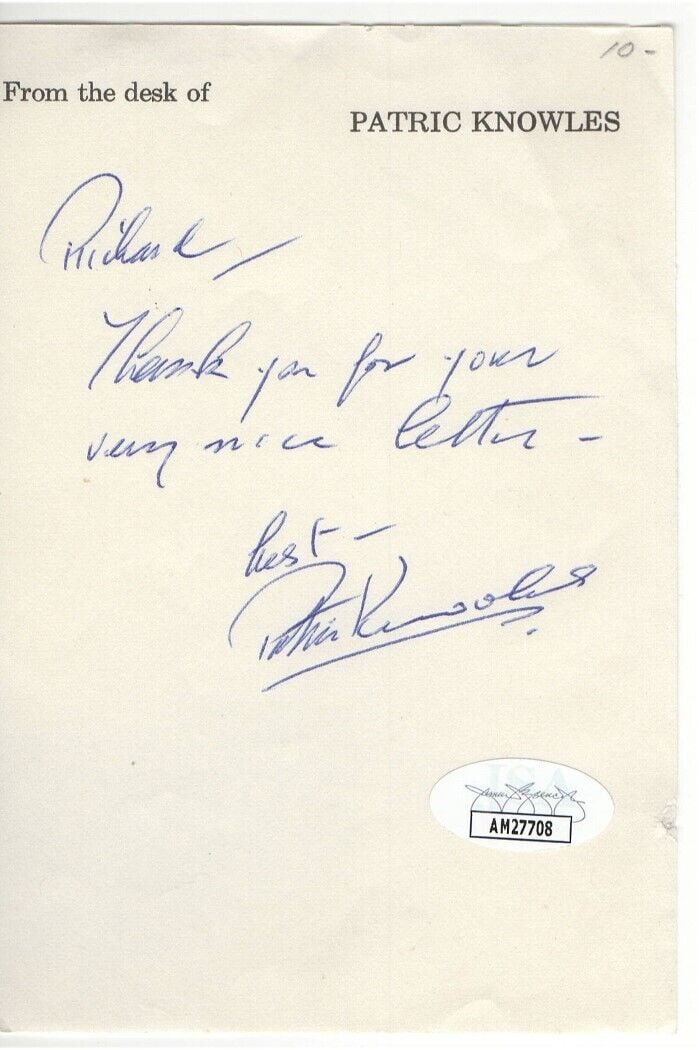 10-
From the desk of
PATRIC KNOWLES
Richard,
Thank you for your
very nice letter -
best -
Patric Knowles
JSA
AM27708